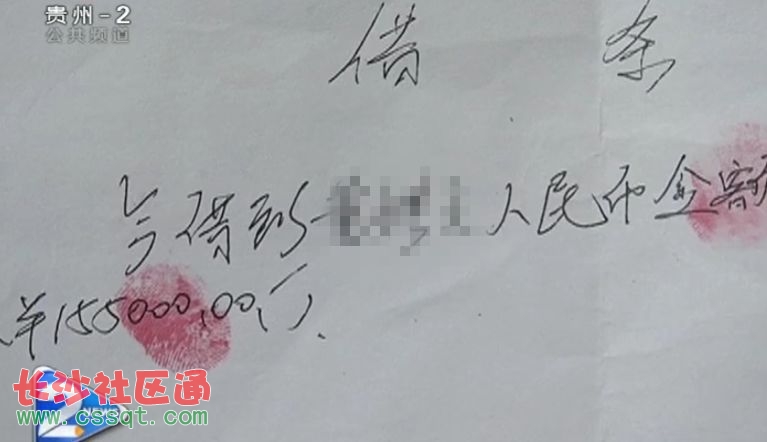 贵州-2
公共频道
借 条
今借到 人民币金额
￥155000.00
长沙社区通
www.cssqt.com
NEWS